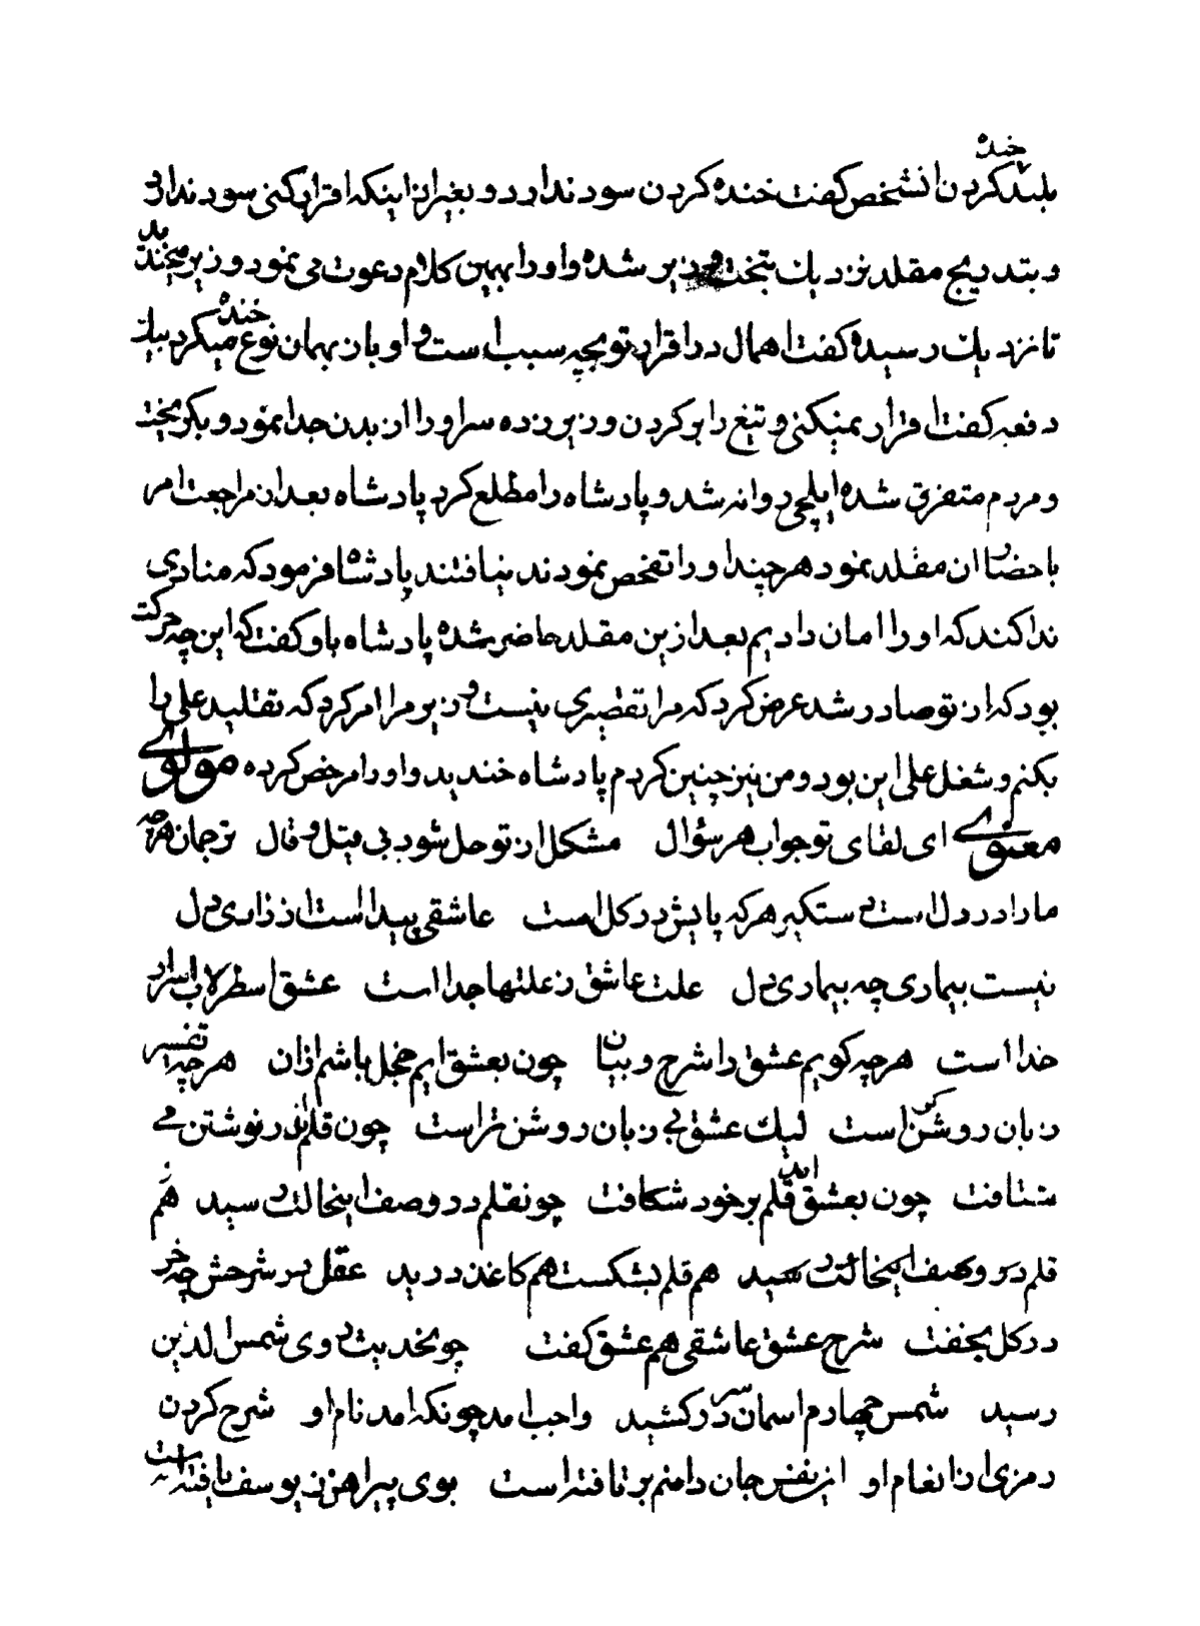 خنده
بلند کردن انشخص کفت خنده کردن سود ندارد و بغیر از اینکه اقرار کنی سود نداری
و بتدریج مقلد نزدیک بتخت وزیر شده و او را بهمین کلام دعوت می نمود وزیر میخندید
تا نزدیک رسیده کفت اهمال در اقرار تو بچه سبب است و او باز بهمان نوع خنده میکرد بیک
دفعه کفت اقرار نمیکنی و تیغ را بر کردن وزیر زده سر او را از بدن جدا نمود و بکریخت
و مردم متفرق شده ایلچی روانه شد و پادشاه را مطلع کرد پادشاه بعد از مراجعت امر
باحضار ان مقلد نمود هر چند او را تفحص نمودند نیافتند پادشاه فرمود که منادی
ندا کند که او را امان دادیم بعد ازین مقلد حاضر شده پادشاه باو کفت که این چه حرکت
بود که از تو صادر شد عرض کرد که مرا تقصیری نیست وزیر مرا امر کرد که تقلید علی را
بکنم و شغل علی این بود و من نیز چنین کردم پادشاه خندید و او را مرخص کرده مولوی
معنوی ای لقای تو جواب هر سؤال مشکل از تو حل شود بی قیل و قال ترجمان هرچه
ما را در دل است دستکیر هر که پایش در کل است عاشقی پیداست از زاری دل
نیست بیماری چه بیماری دل علت عاشق ز علتها جدا است عشق اسطرلاب اسرار
خدا است هر چه کویم عشق را شرح و بیان چون بعشق ایم خجل باشم ازان هرچه تفسیر
زبان روشن کر است لیک عشق بی زبان روشن تر است چون قلم اندر نوشتن می
شتافت چون بعشق امد قلم بر خود شکافت چونقلم در وصف اینحالت رسید هم
قلم در وصف اینحالت رسید هم قلم بشکست هم کاغذ درید عقل در شرحش چه خر
در کل بخفت شرح عشق عاشقی هم عشق کفت چونحدیث روی شمس الدین
رسید شمس چهارم اسمان سر در کشید واجب امد چونکه امد نام او شرح کردن
رمزی از انعام او این نفس جان دامنم بر تافته است بوی پیراهن ز یوسف یافته است